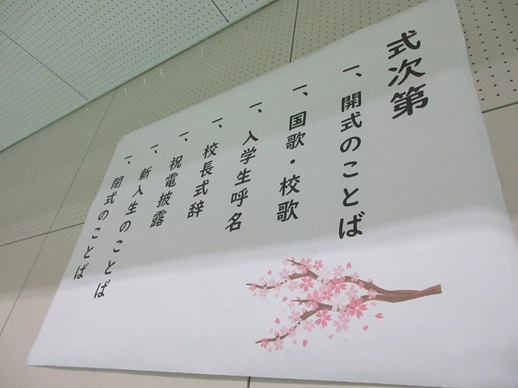 式次第
一、開式のことば
一、国歌・校歌
一、入学生呼名
一、校長式辞
一、祝電披露
一、新入生のことば
一、閉式のことば